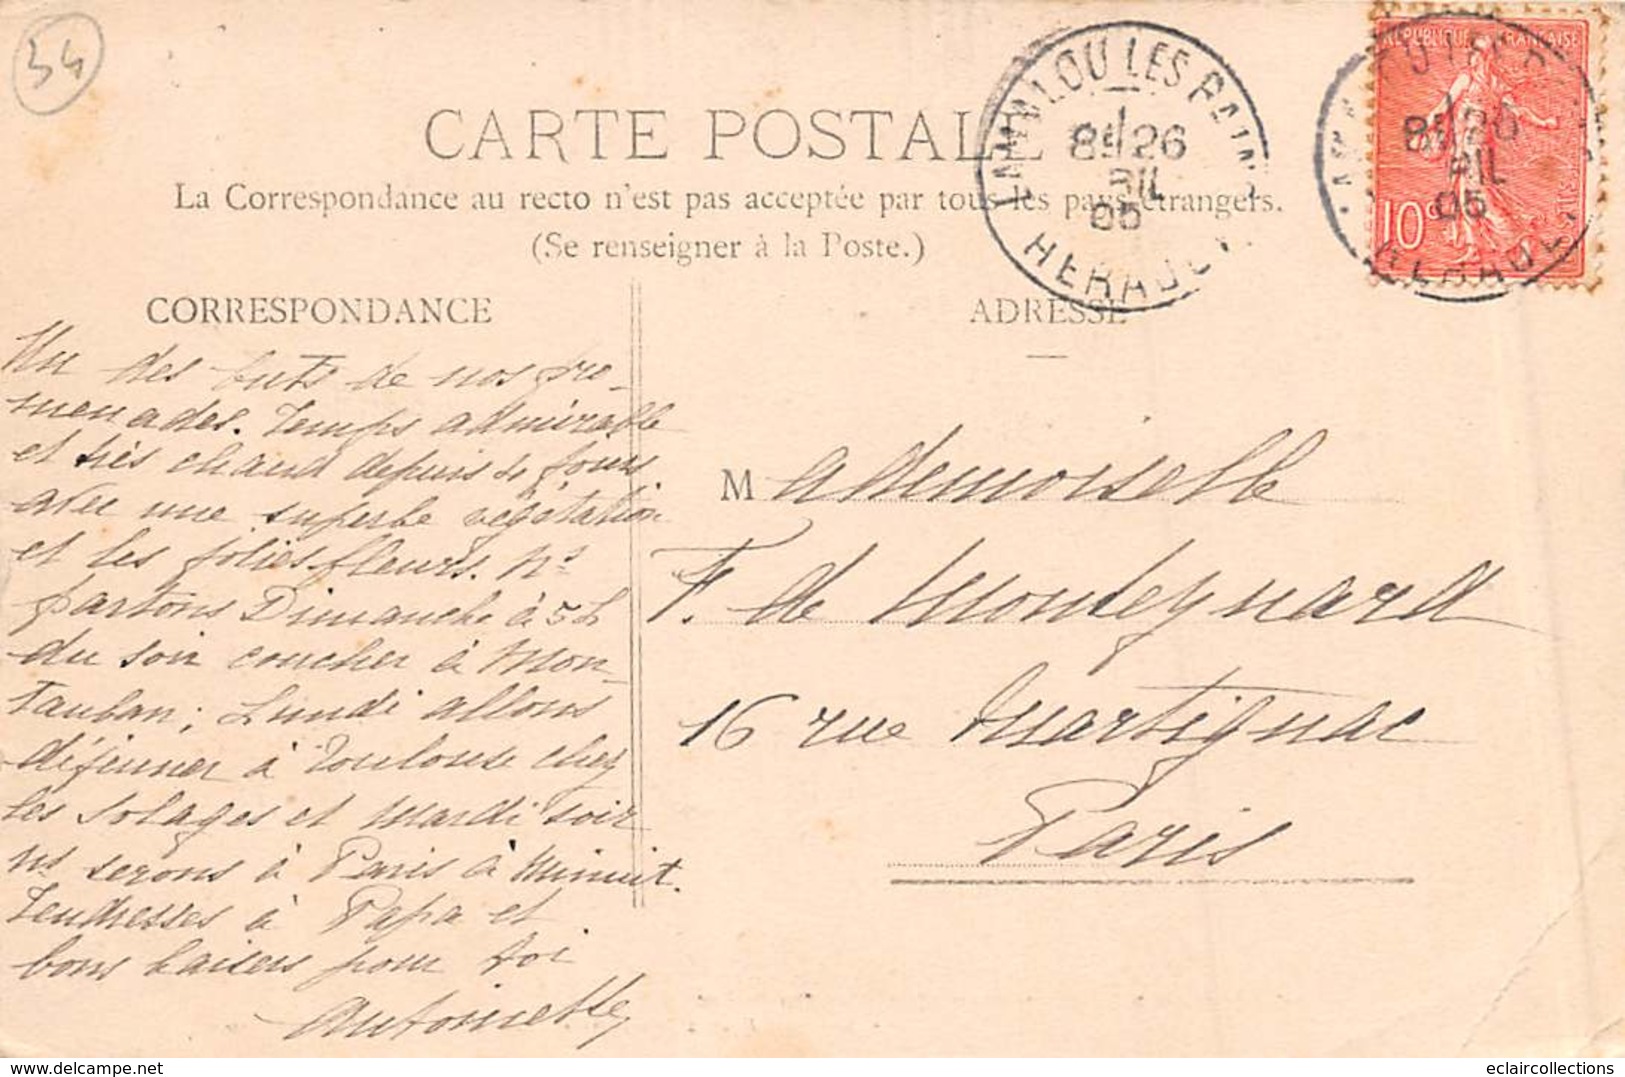 54
CARTE POSTALE
La Correspondance au recto n'est pas acceptée par tous les pays étrangers.
(Se renseigner à la Poste.)
LAMALOU LES BAINS
8E 26
05
HERAULT
REPUBLIQUE FRANÇAISE
10c
POSTES
CORRESPONDANCE
Un des buts de nos pro-
menades. Temps admirable
et très chaud depuis 4 jours
avec une superbe végétation
et les jolies fleurs. Ns
partons Dimanche à 5 h
du soir coucher à Mon-
tauban; Lundi allons
déjeuner à Toulouse chez
les Solages et Mardi soir
ns serons à Paris à minuit.
Tendresses à Papa et
bons baisers pour toi
Antoinette
ADRESSE
Mademoiselle
F. de Monteynard
16 rue Martignac
Paris
www.eclaircollections.com